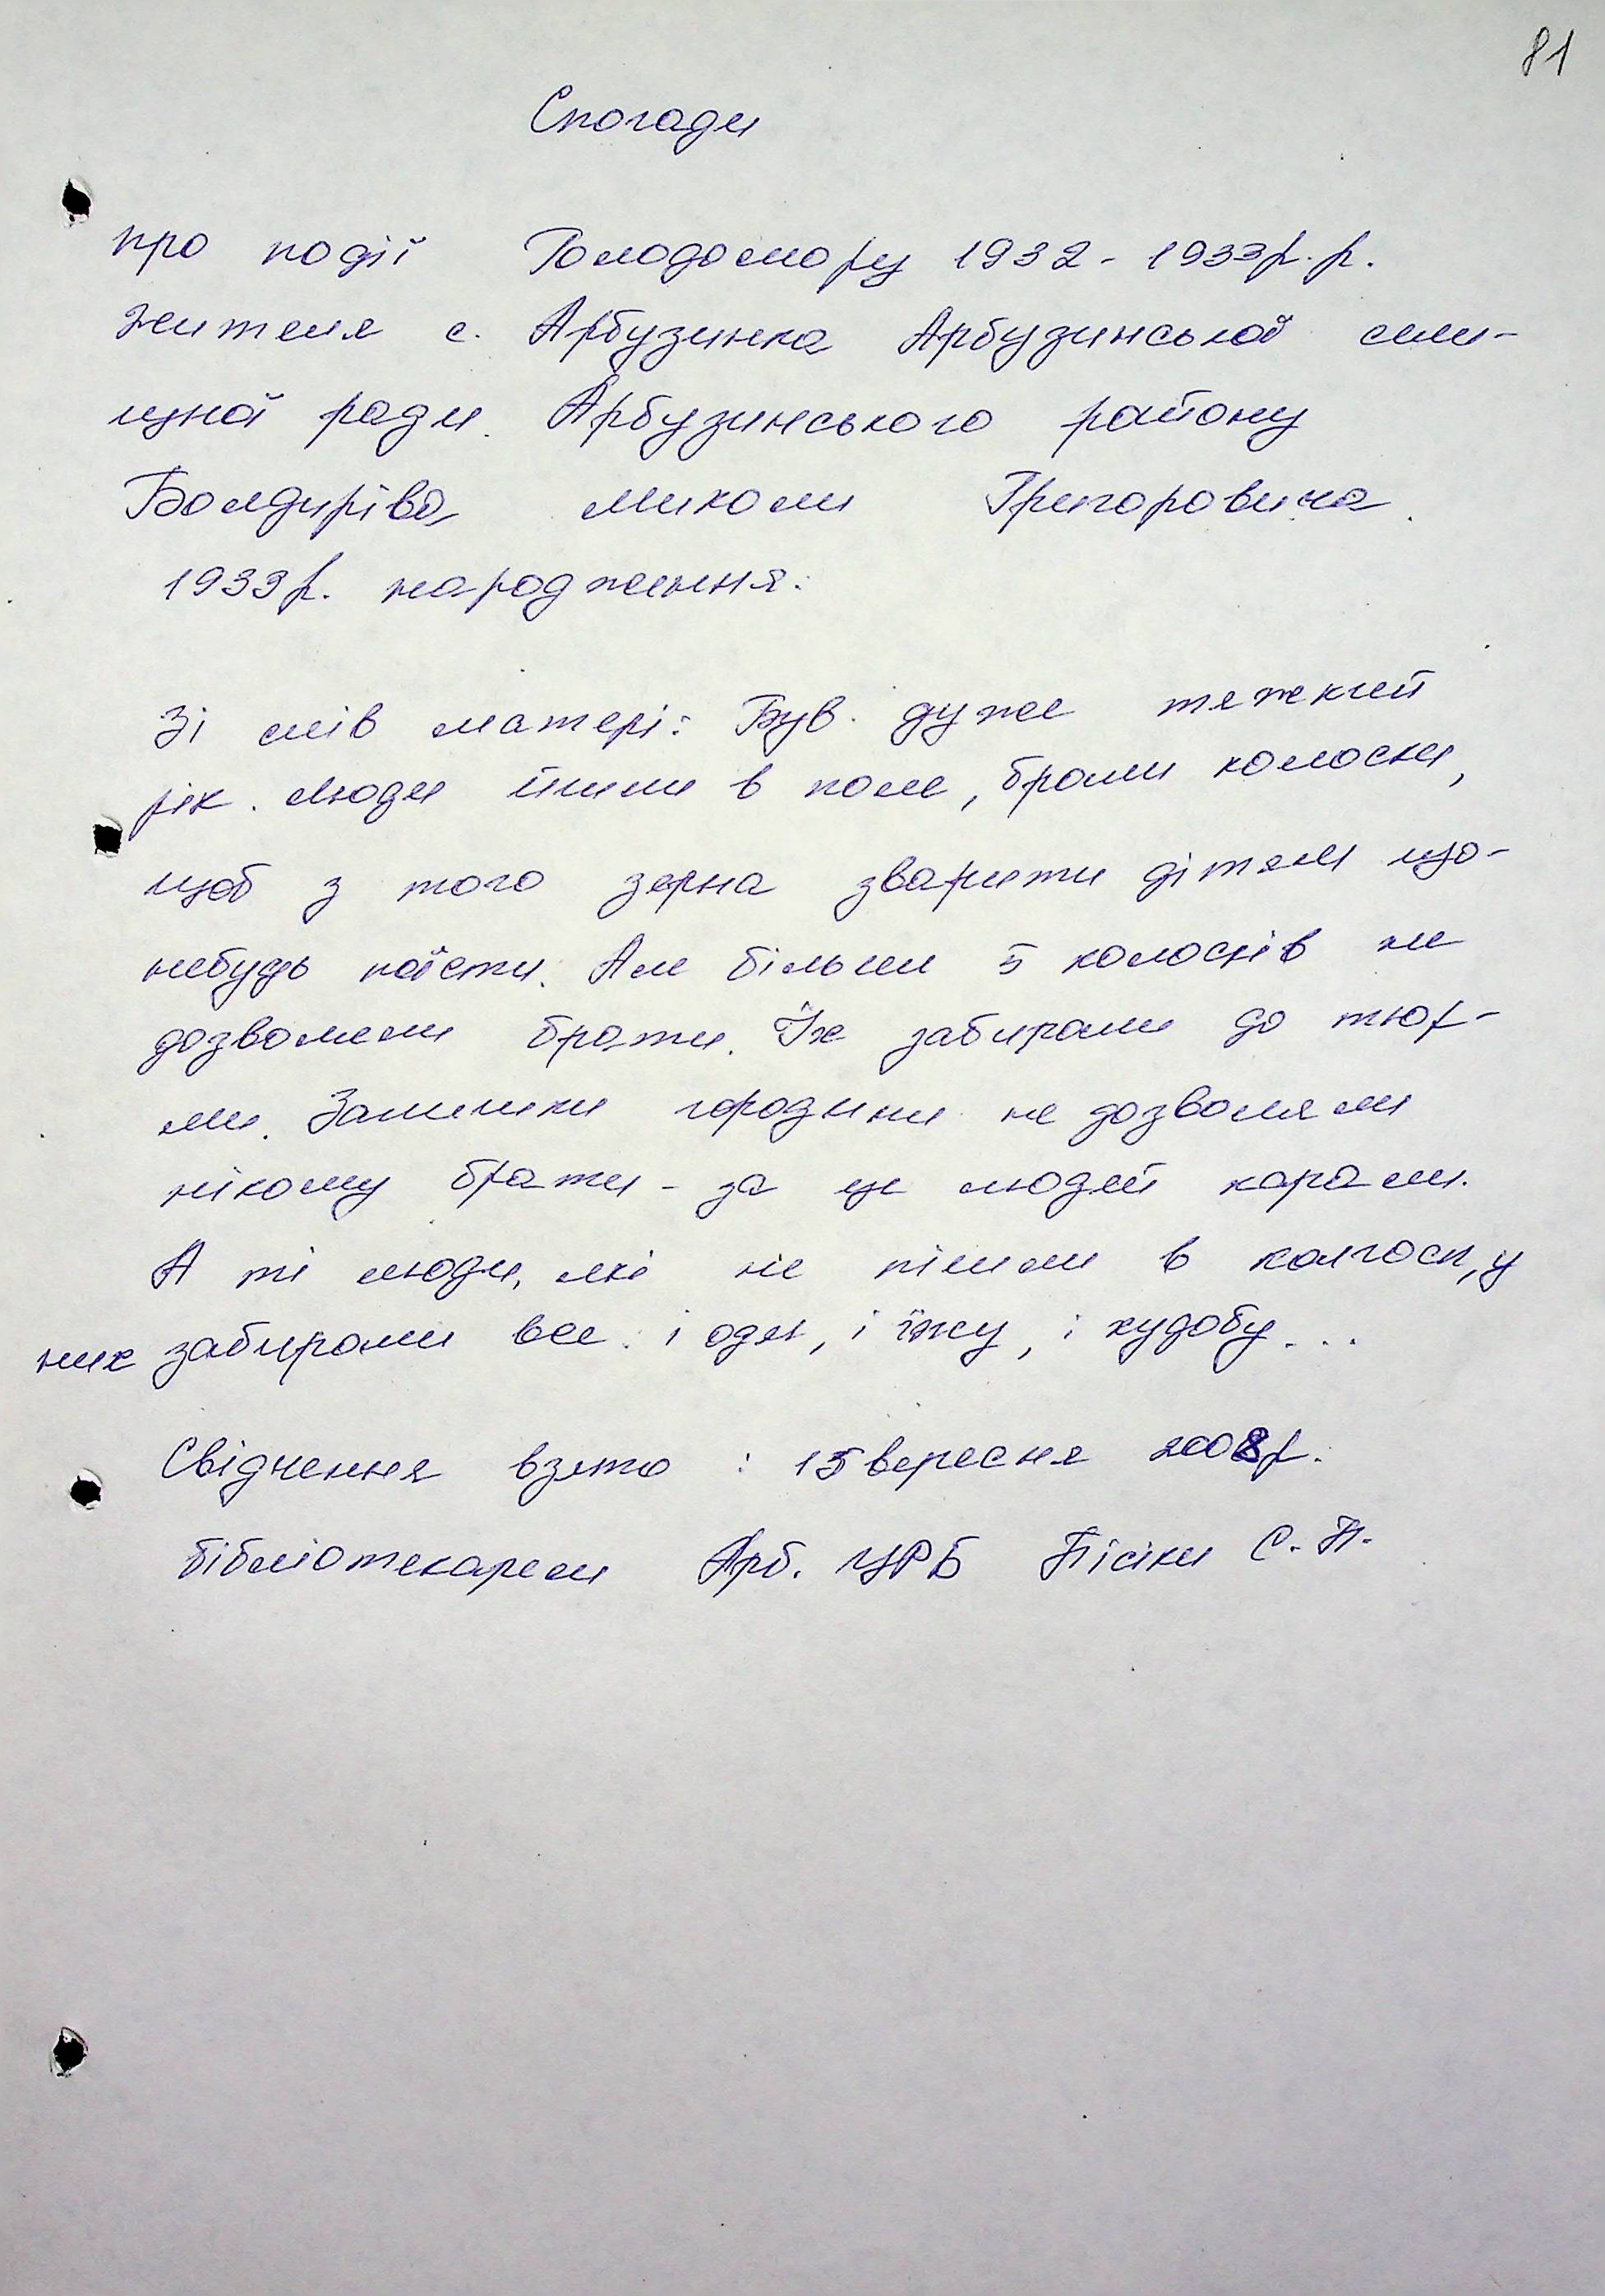 81
Спогади
про події Голодомору 1932 - 1933р. р.
жителя с. Арбузинка Арбузинської сели-
щної ради Арбузинського району
Болдиріва Миколи Григоровича
1933р. народження.
Зі слів матері: Був дуже тяжкий
рік. Люди йшли в поле, брали колоски,
щоб з того зерна зварити дітям що-
небудь поїсти. Але більше 5 колосків не
дозволяли брати. Їх забирали до тюр-
ми. Залишки городини не дозволяли
нікому брати - за це людей карали.
А ті люди, які не пішли в колгосп, у
них забирали все і одяг, і їжу, і худобу...
Свідчення взято : 15 вересня 2008р.
бібліотекарем Арб. ЦРБ С. П.